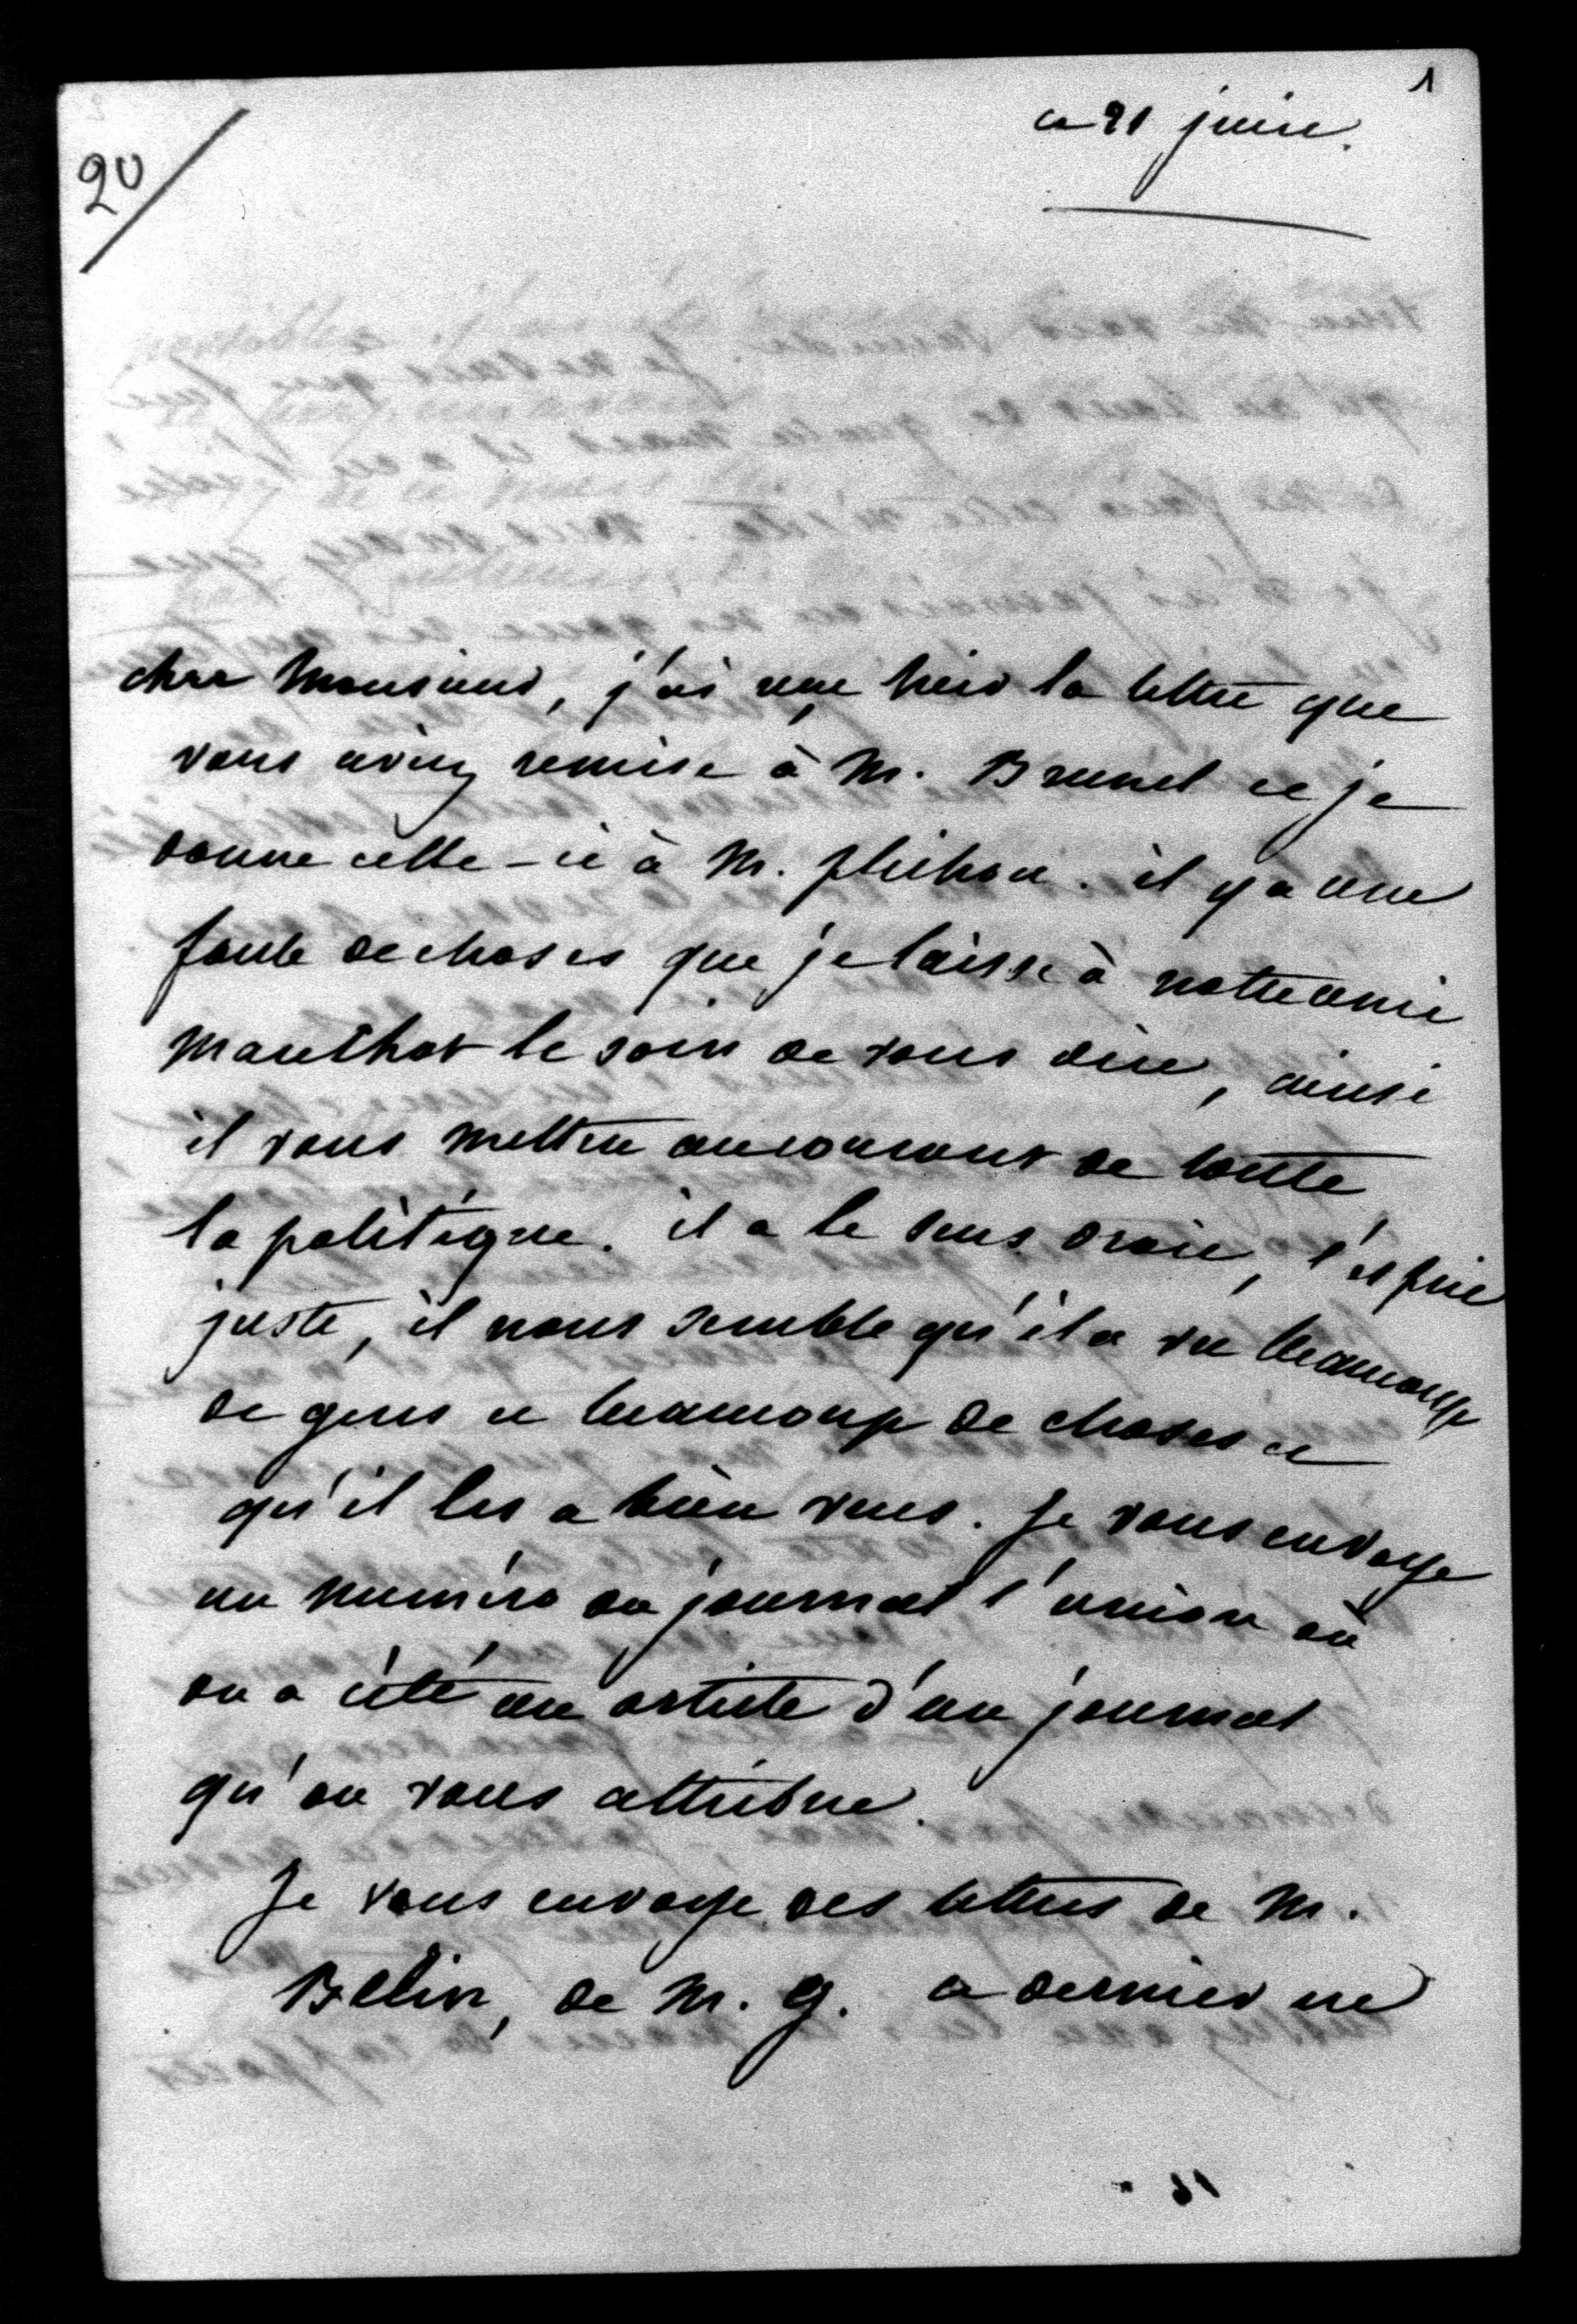 1
20
ce 21 juin.
cher Monsieur, j'ai reçu hier la lettre que
vous aviez remise à M. Brunet et je
donne celle-ci à M. plihon. il y a une
foule de choses que je laisse à notre ami
Mauthot le soin de vous dire, ainsi
il vous mettra au courant de toute
la politique. il a le sens droit, l'esprit
juste, il nous semble qu'il a vu beaucoup
de gens et beaucoup de choses et
qu'il les a bien vus. Je vous envoye
un numéro du journal l'union où
on a cité un article d'un journal
qu'on vous attribue.
Je vous envoye des lettres de M.
Belin, de M. G. ce dernier ne